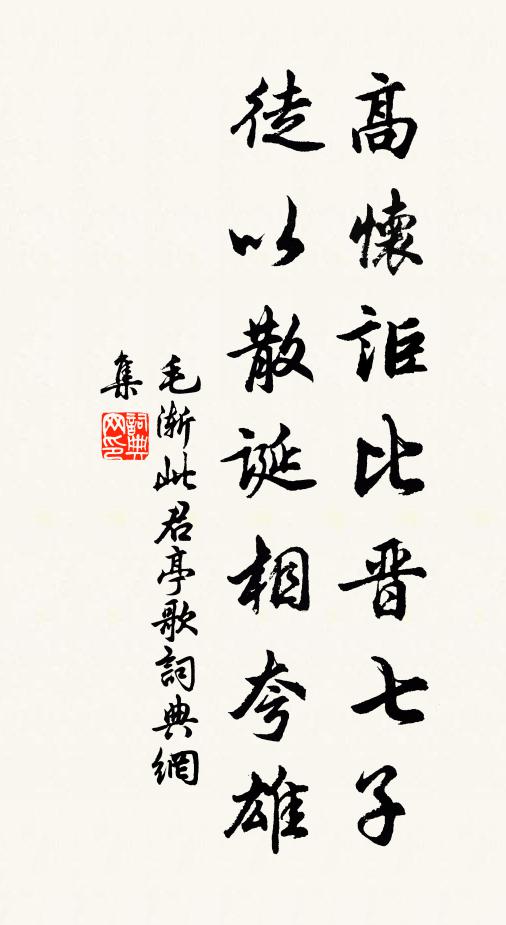 高懷詎比晋七子
徒以散誕相夸雄
毛漸此君亭歌詞典網
集
詞典
网印